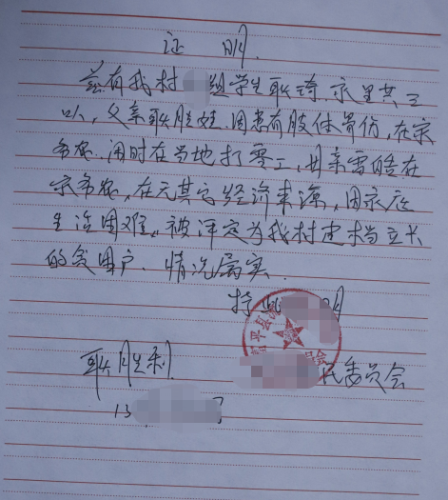 证 明
兹有我村 组学生耿 家里共三
口人，父亲耿胜 因患有肢体 伤，在家
务农，闲时在当地打零工，母亲 在
家务农，在无其它经济来源，因家庭
生活困难，被评定为我村建档立卡
的贫困户，情况属实。
特 明
民委员会
耿胜利